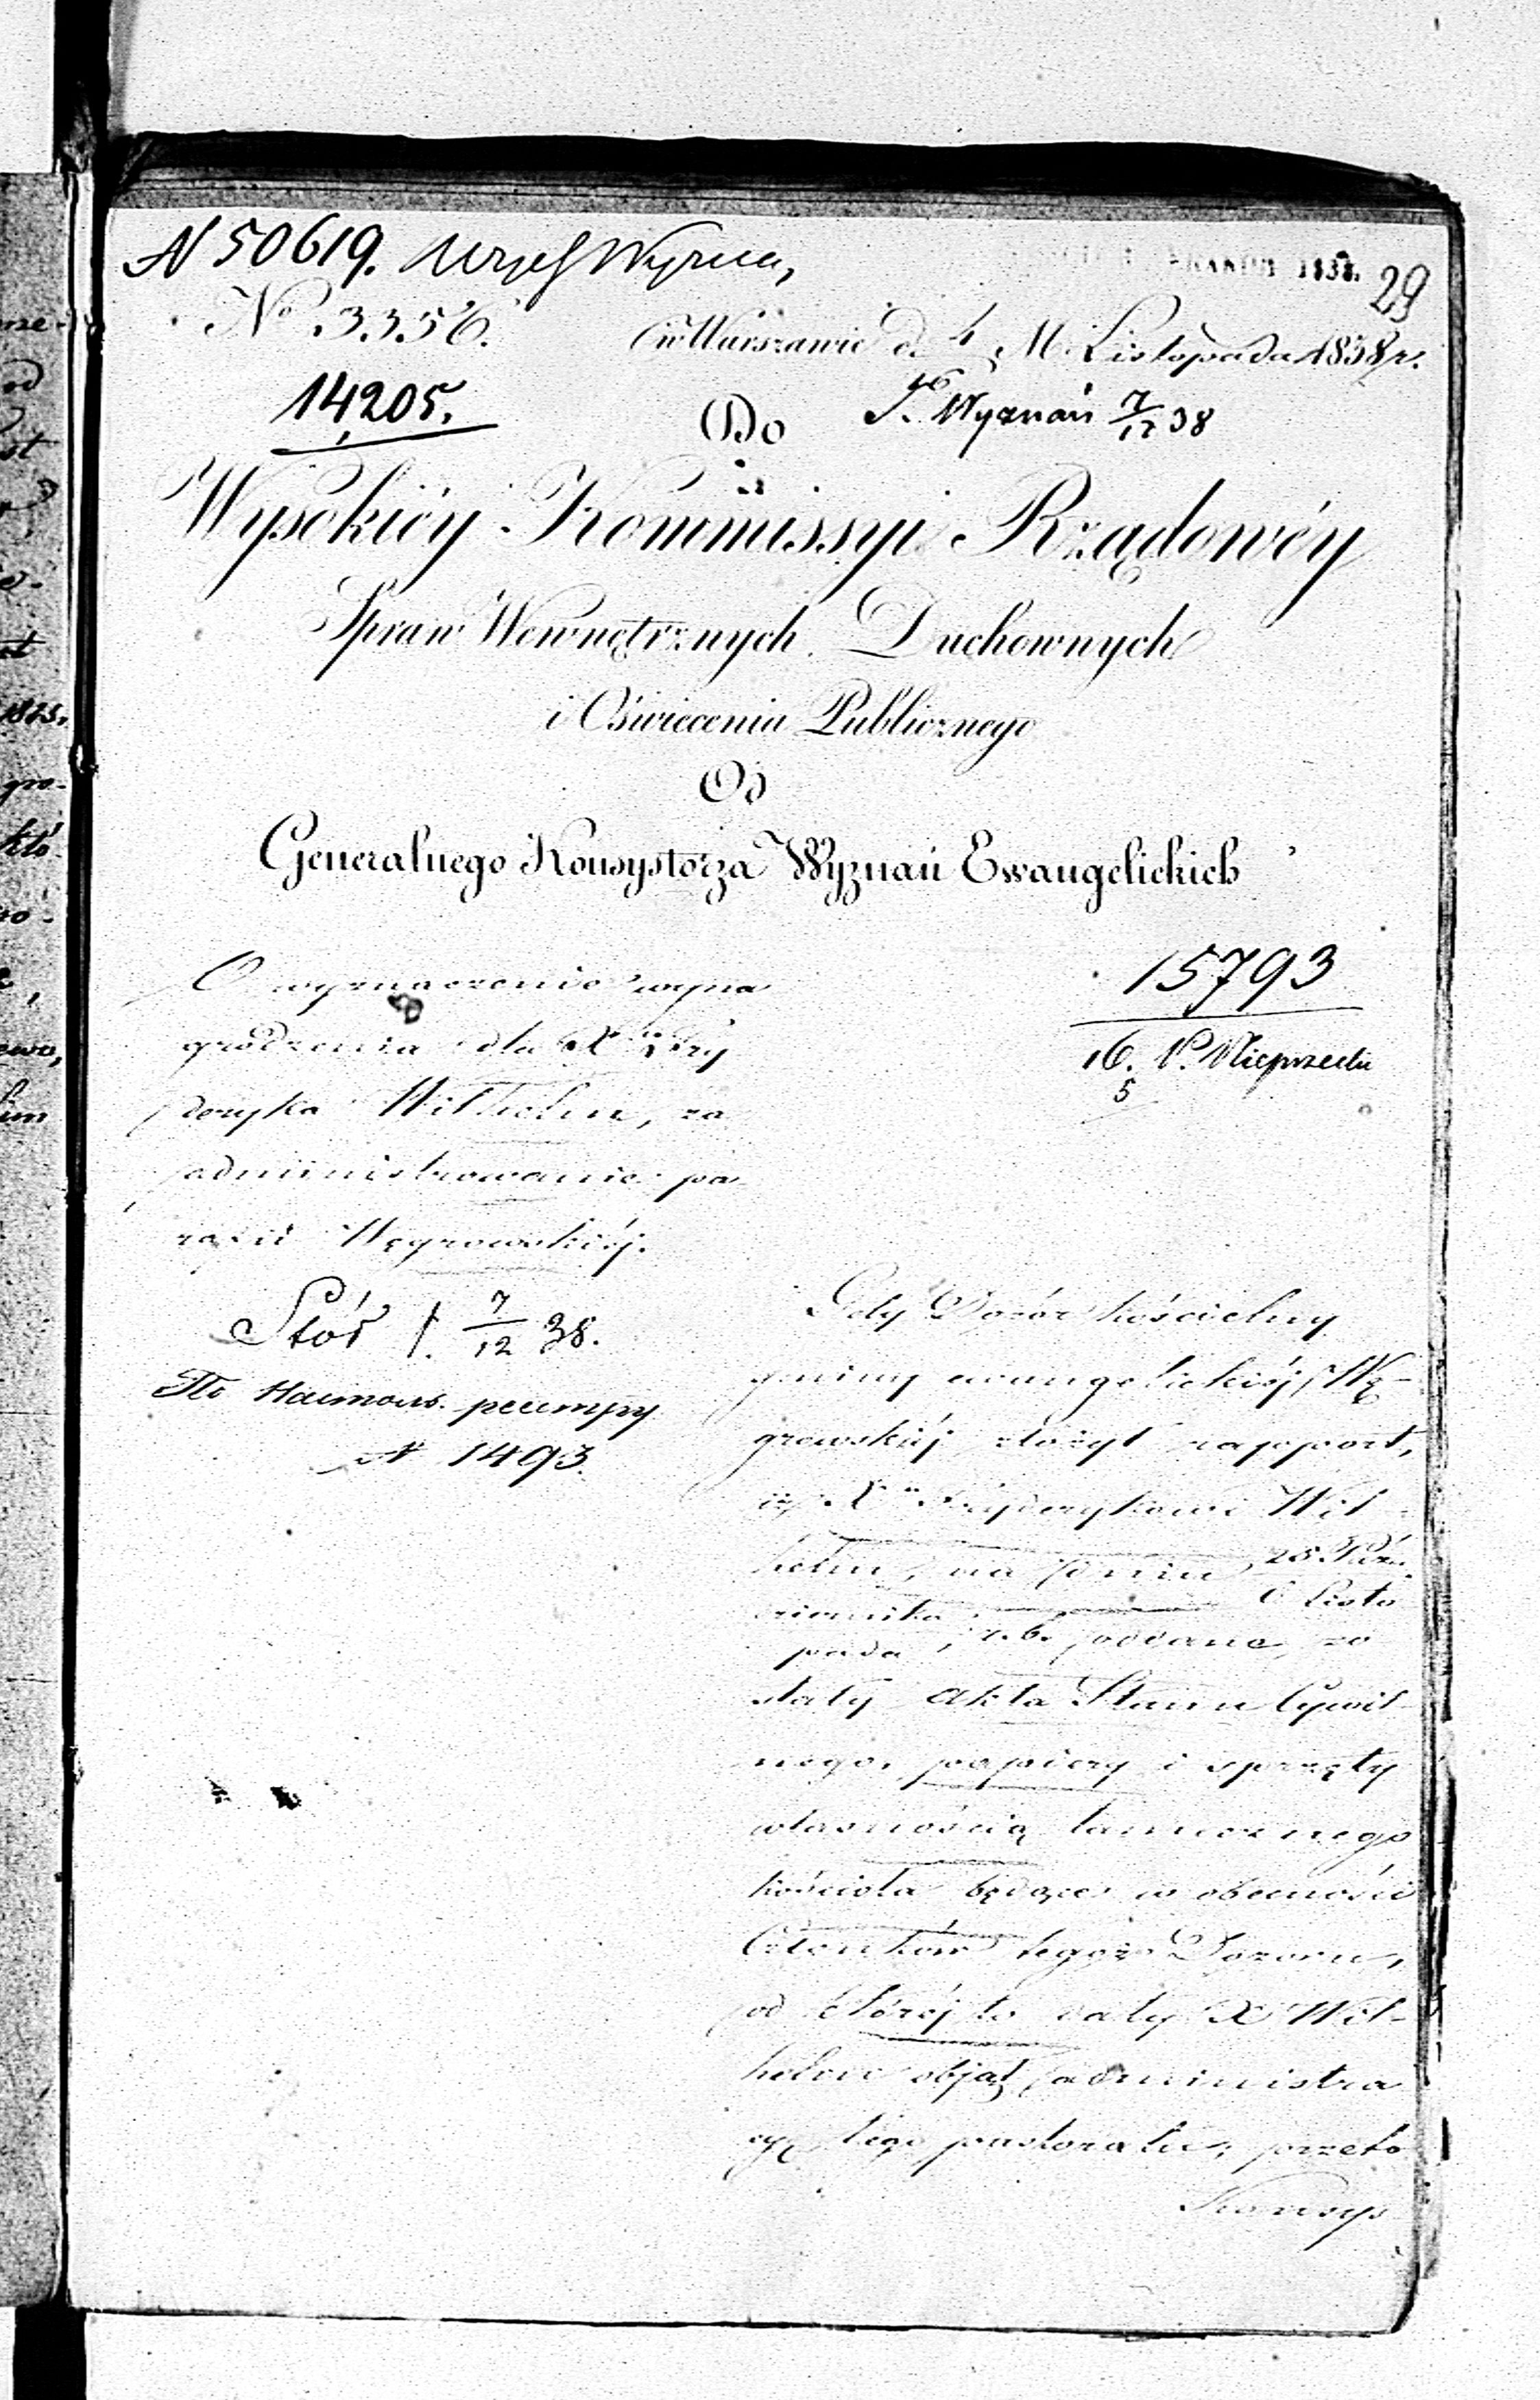 N 50619.
29
No 3356.
w Warszawie d. 4 M. Listopada 1838 r.
16
14,205.
Do
Wyznań 7/12 38
Wysokiéy Kommissyi Rządowéy
Spraw Wewnętrznych Duchownych
i Oświecenia Publicznego
Od
Generalnego Konsystorza Wyznań Ewangelickich
O wyznaczenie wyna
grodzenia dla Xa Fry
deryka Wilhelm, za
administrowanie pa-
rafii Węgrowskiéj.
15793
16.
5
7/12 38.
N 1493.
Gdy Dozór kościelny
gminy ewangelickiéj Wę-
growskiéj złożył rapport,
iż Xu Fryderykowi Wil-
helm, na dniu 25 Paźd
ziernika
6 Listo
pada r. b. oddane zo
stały Akta Stanu Cywil-
nego, papiery i sprzęty
własnością tamecznego
kościoła będące w obecności
Członków tegoż Dozoru,
od któréj to daty X Wil-
helm objął administra
cyę tego pastoratu; przeto
Konsys